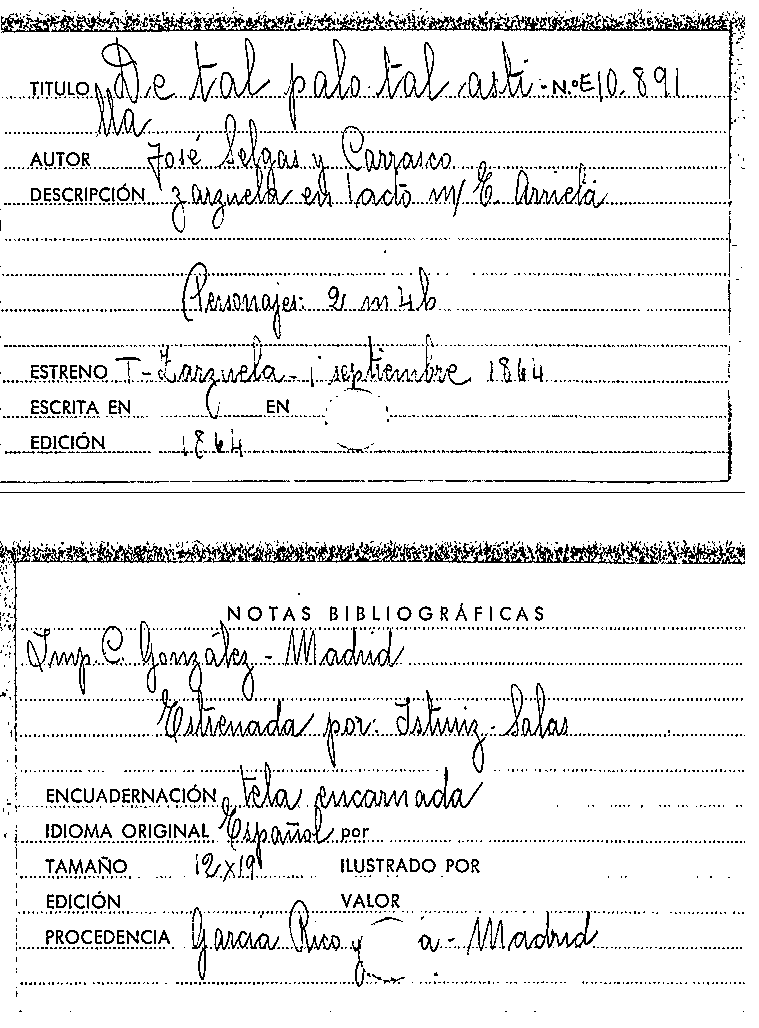 TITULO De tal palo tal asti - N.º E10.891
lla
AUTOR José Selgas y Carrasco
DESCRIPCIÓN zarzuela en 1 acto m/ E. Arrieta
Personajes: 2 m 4 h
ESTRENO T-Zarzuela - 1 septiembre 1864
ESCRITA EN EN
EDICIÓN 1864
NOTAS BIBLIOGRÁFICAS
Imp. C. González - Madrid
Estrenada por: Isturiz - Salas
ENCUADERNACIÓN tela encarnada
IDIOMA ORIGINAL Español por
TAMAÑO 12x19 ILUSTRADO POR
EDICIÓN VALOR
PROCEDENCIA García Rico y a - Madrid